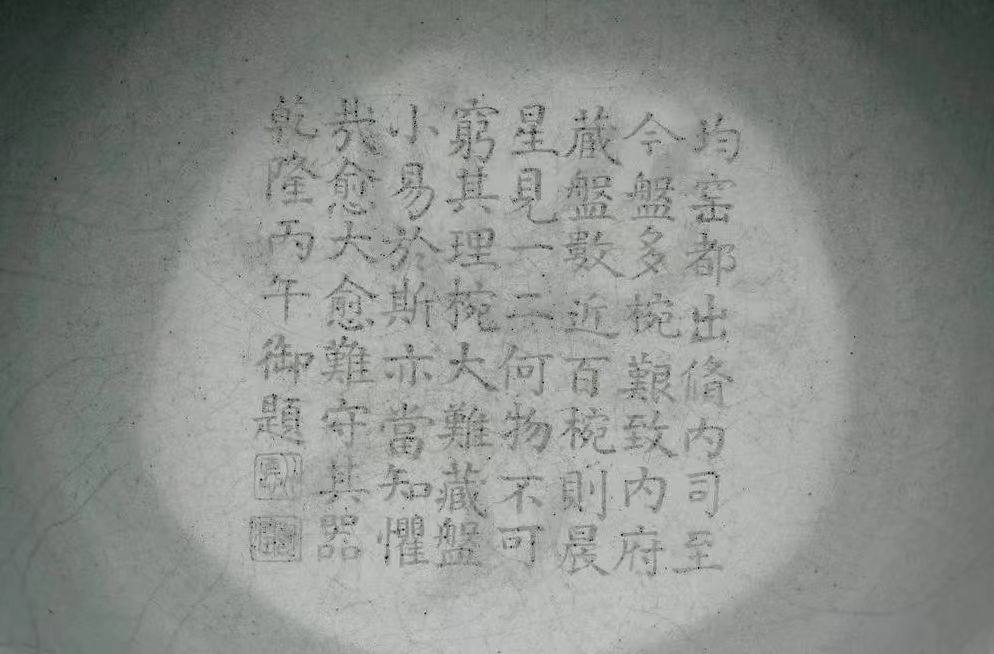 均窑都出脩内司至
今盤多椀艱致内府
蔵盤數近百椀則晨
星見一二何物不可
窮其理椀大難藏盤
小易於斯亦當知懼
哉愈大愈難守其器
乾隆丙午御題